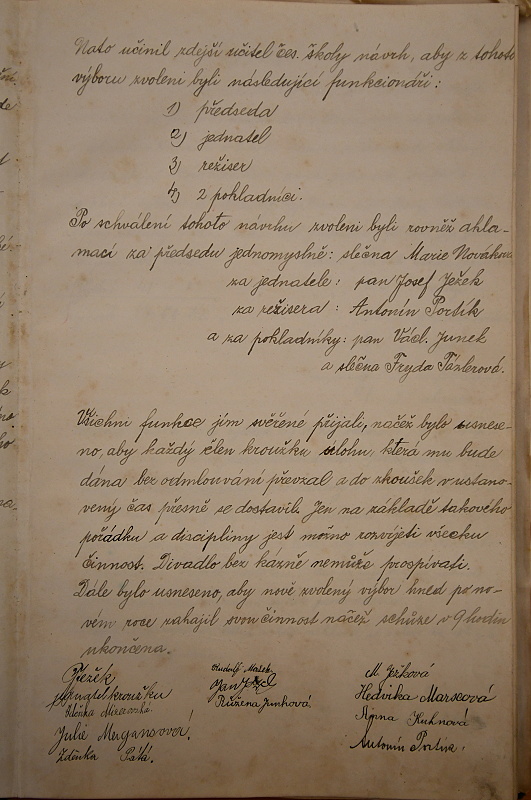 Nato učinil zdejší učitel čes. školy návrh, aby z tohoto
výboru zvoleni byli následující funkcionáři:
1) předseda
2) jednatel
3) režiser
4) 2 pokladníci.
Po schválení tohoto návrhu zvoleni byli rovněž akla-
mací za předsedu jednomyslně: slečna Marie Nováková
za jednatele: pan Josef Ježek
za režisera: Antonín Portík
a za pokladníky: pan Václ. Junek
a slečna Fryda
Všichni funkce jim svěřené přijali, načež bylo usnese-
no, aby každý člen kroužku úlohu, která mu bude
dána bez odmlouvání převzal a do zkoušek v ustano-
vený čas přesně se dostavil. Jen na základě takového
pořádku a discipliny jest možno rozvíjeti všecku
činnost. Divadlo bez kázně nemůže prospívati.
Dále bylo usneseno, aby nově zvolený výbor hned po no-
vém roce zahájil svou činnost načež schůze v 9 hodin
ukončena.
Ježek
jednatel kroužku
Zdeňka
Julie
Zdeňka
Rudolf
Jan
Růžena Junková
M. Ježková
Hedvika
Anna Kuhnová
Antonín